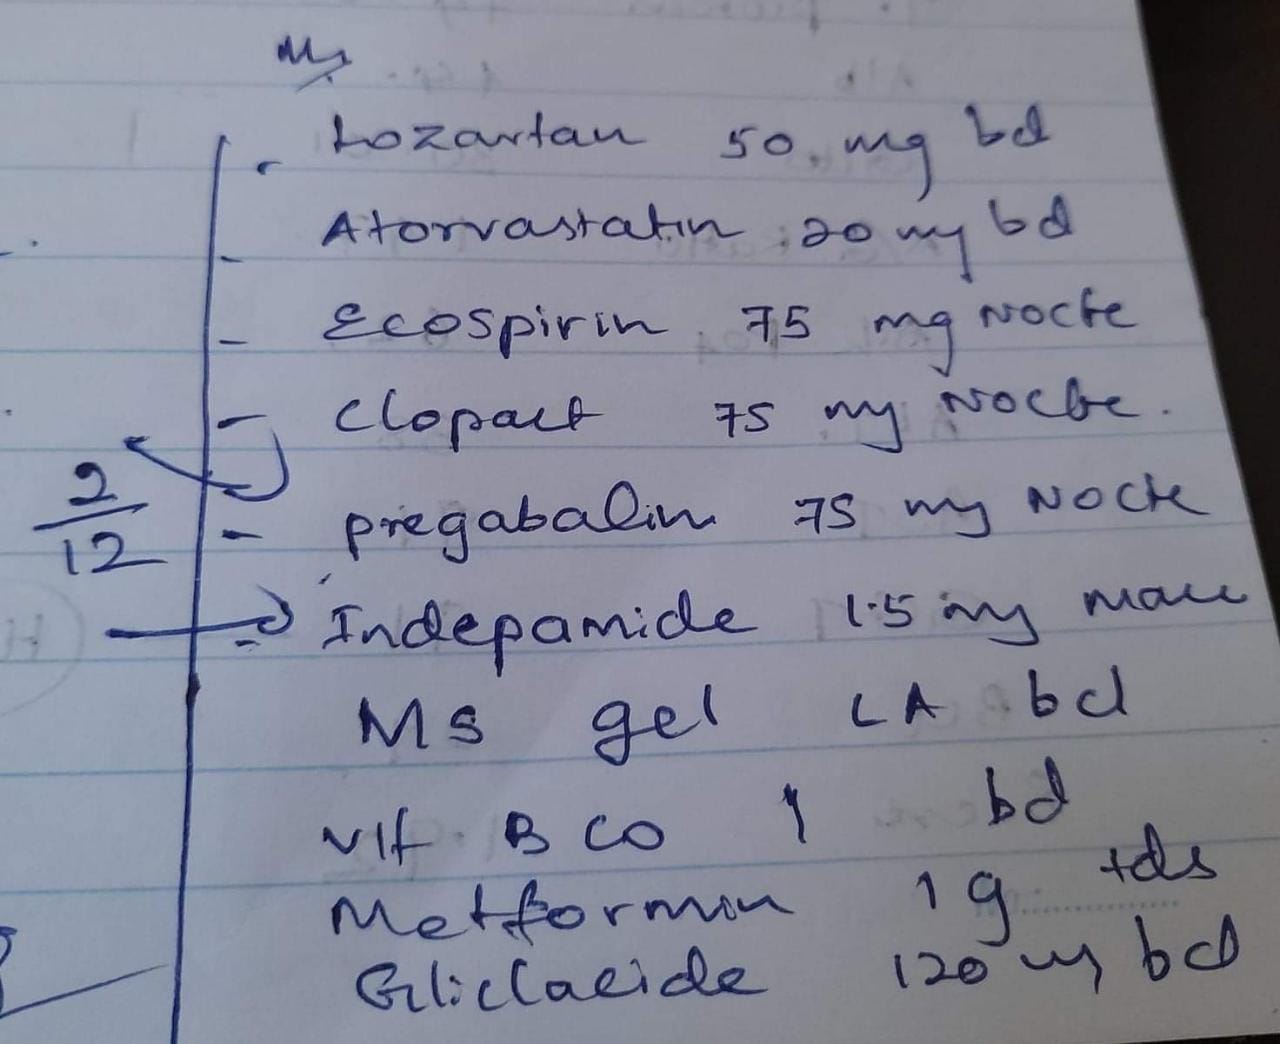 Lozartan 50 mg bd
Atorvastatin 20 mg bd
Ecospirin 75 mg Nocte
Clopact 75 mg Nocte.
2/12
pregabalin 75 mg Nocte
Indepamide 1.5 mg mane
MS gel LA bd
vit B CO 1 bd
Metformin 1 g tds
Gliclacide 120 mg bd